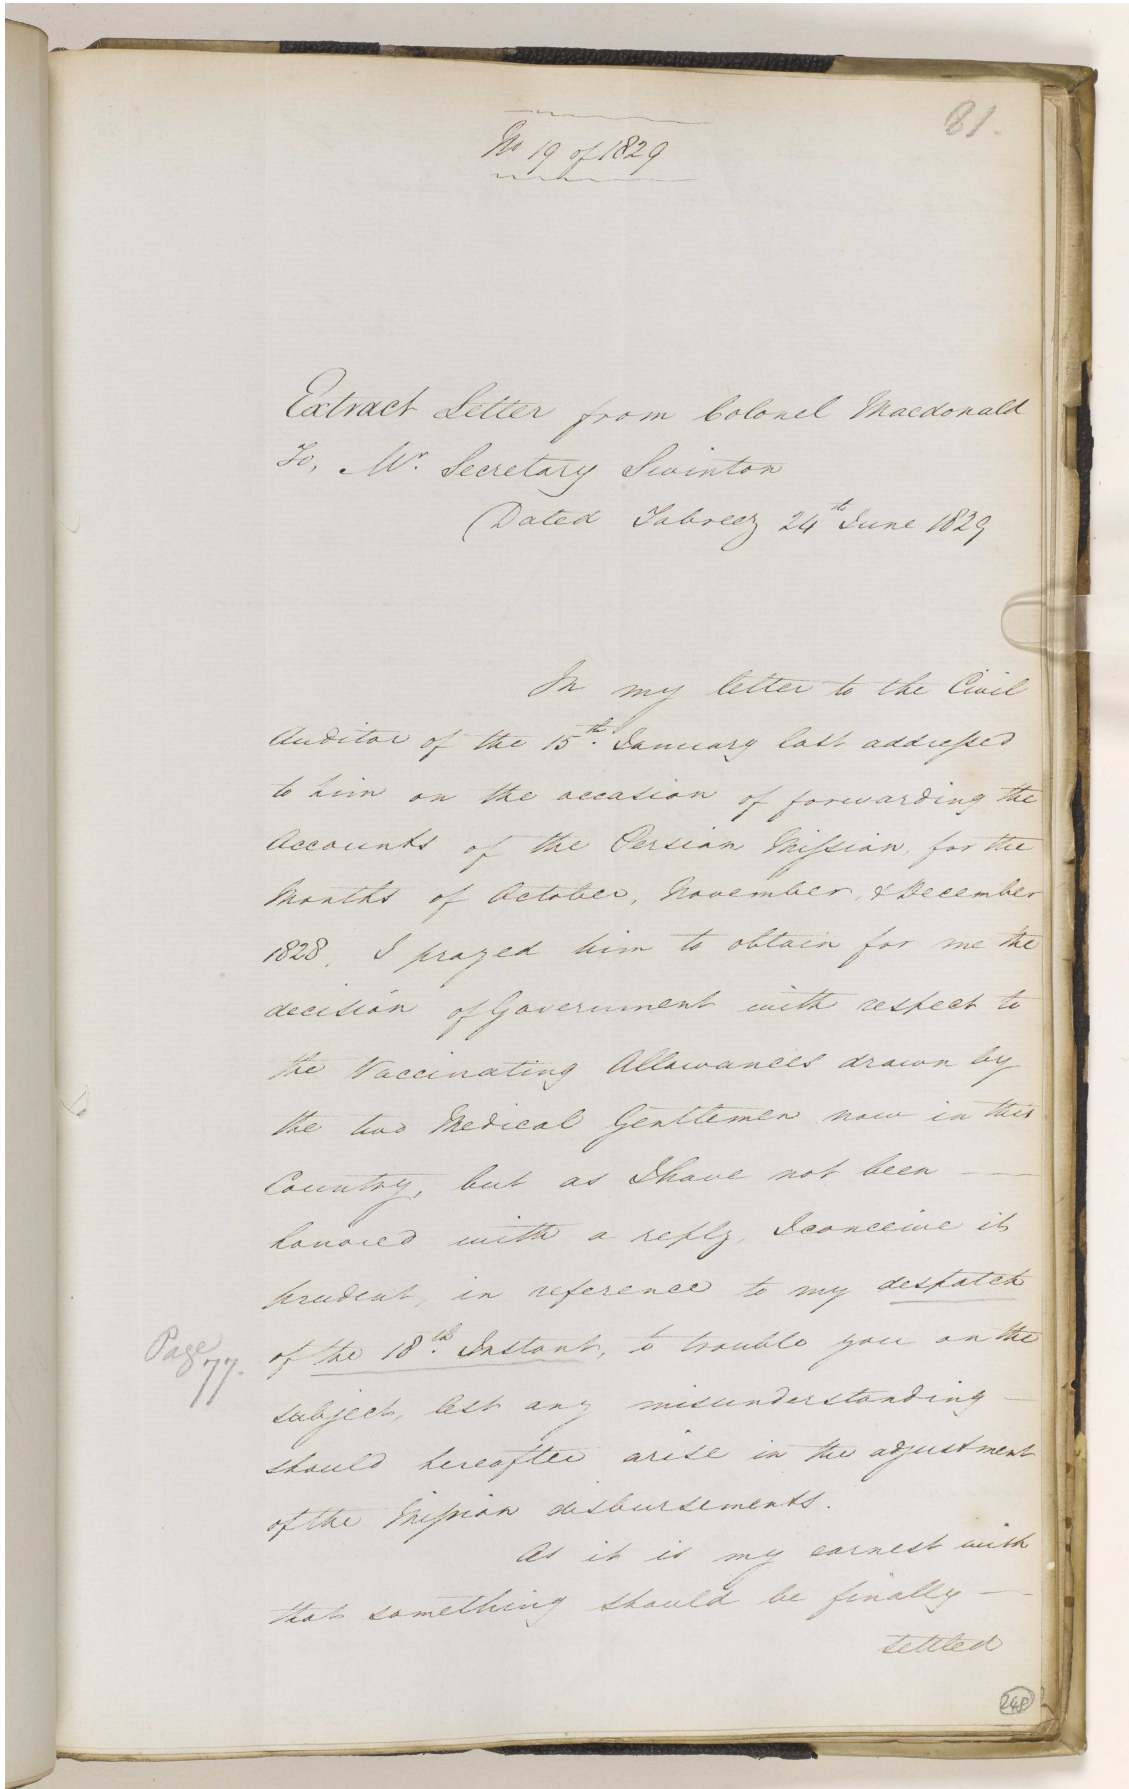 81.
No 19 of 1829
Extract Letter from Colonel Macdonald
To, Mr. Secretary Swinton
Dated Tabreez 24th June 1829
In my letter to the Civil
Auditor of the 15th. January last addressed
to him on the occasion of forwarding the
Accounts of the Persian Mission, for the
Months of October, November, & December
1828, I prayed him to obtain for me the
decision of Government with respect to
the Vaccinating Allowances drawn by
the two Medical Gentlemen now in this
Country, but as I have not been —
honored with a reply, I conceive it
prudent, in reference to my despatch
Page 77.
of the 18th. Instant, to trouble you on the
subject, lest any misunderstanding —
should hereafter arise in the adjustment
of the Mission disbursements.
As it is my earnest wish
that something should be finally —
settled
248